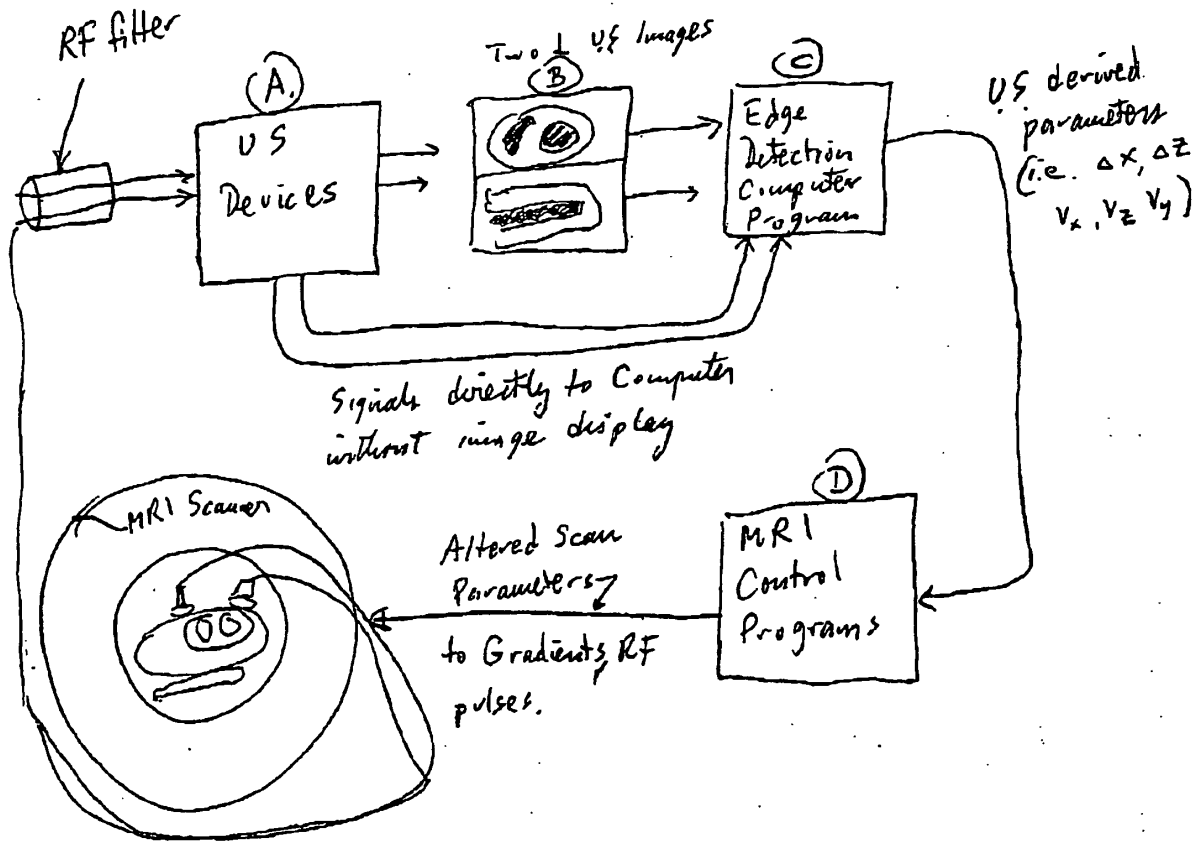 RF filter
A.
US
Devices
Two ⊥ US Images
B
C
Edge
Detection
Computer
Program
US derived
parameters
(i.e. Δx, Δz
Vx, Vz Vy)
Signals directly to Computer
without image display
MRI Scanner
Altered Scan
Parameters
to Gradients, RF
pulses.
D
MRI
Control
Programs